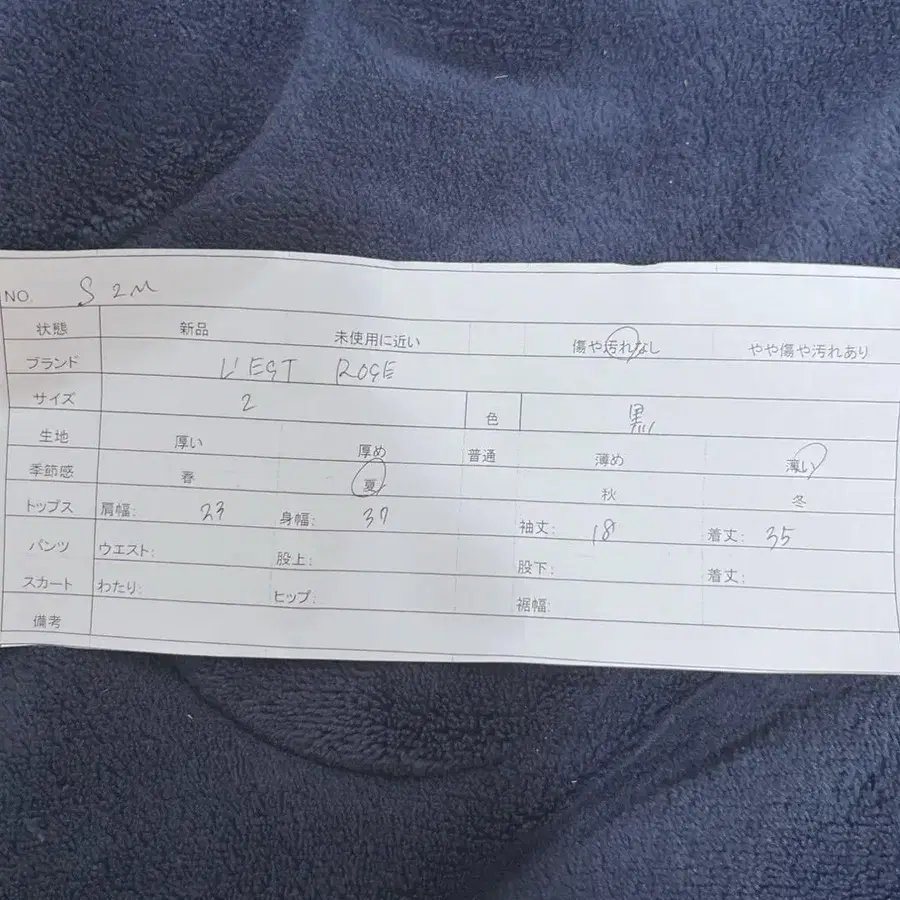 NO. S2M
状態 新品 未使用に近い 傷や汚れなし やや傷や汚れあり
ブランド L'EST ROSE
サイズ 2 色 黒
生地 厚い 厚め 普通 薄め 薄い
季節感 春 夏 秋 冬
トップス 肩幅: 23 身幅: 37 袖丈: 18 着丈: 35
パンツ ウエスト: 股上: 股下: 着丈:
スカート わたり: ヒップ: 裾幅:
備考